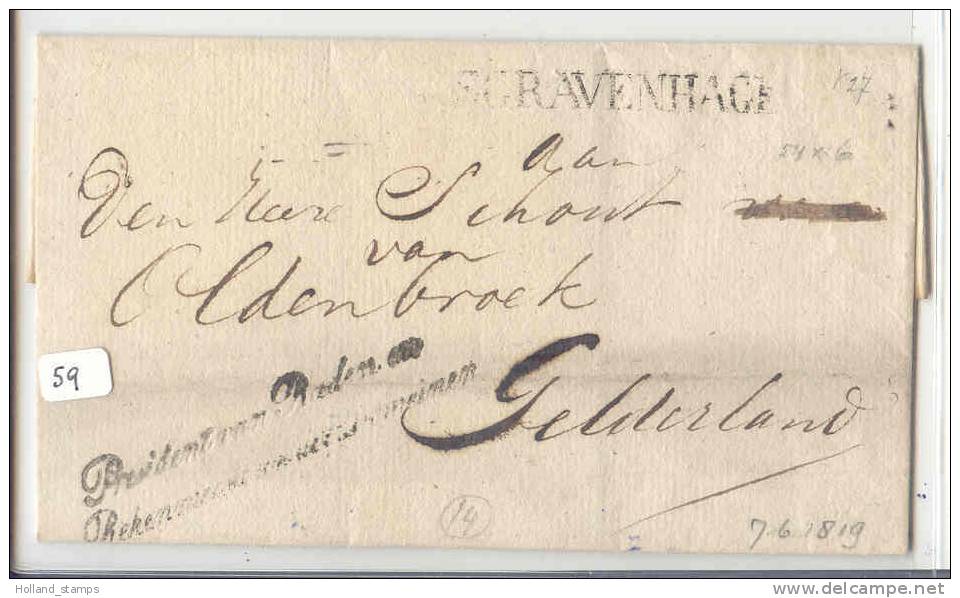 SGRAVENHAGE
K27
Aan
Den Heere Schout
van
Oldenbroek
59
President van Raden en
Rekenmeesters der Domeinen
Gelderland
14
7.6.1819
Holland_stamps
http://www.delcampe.net